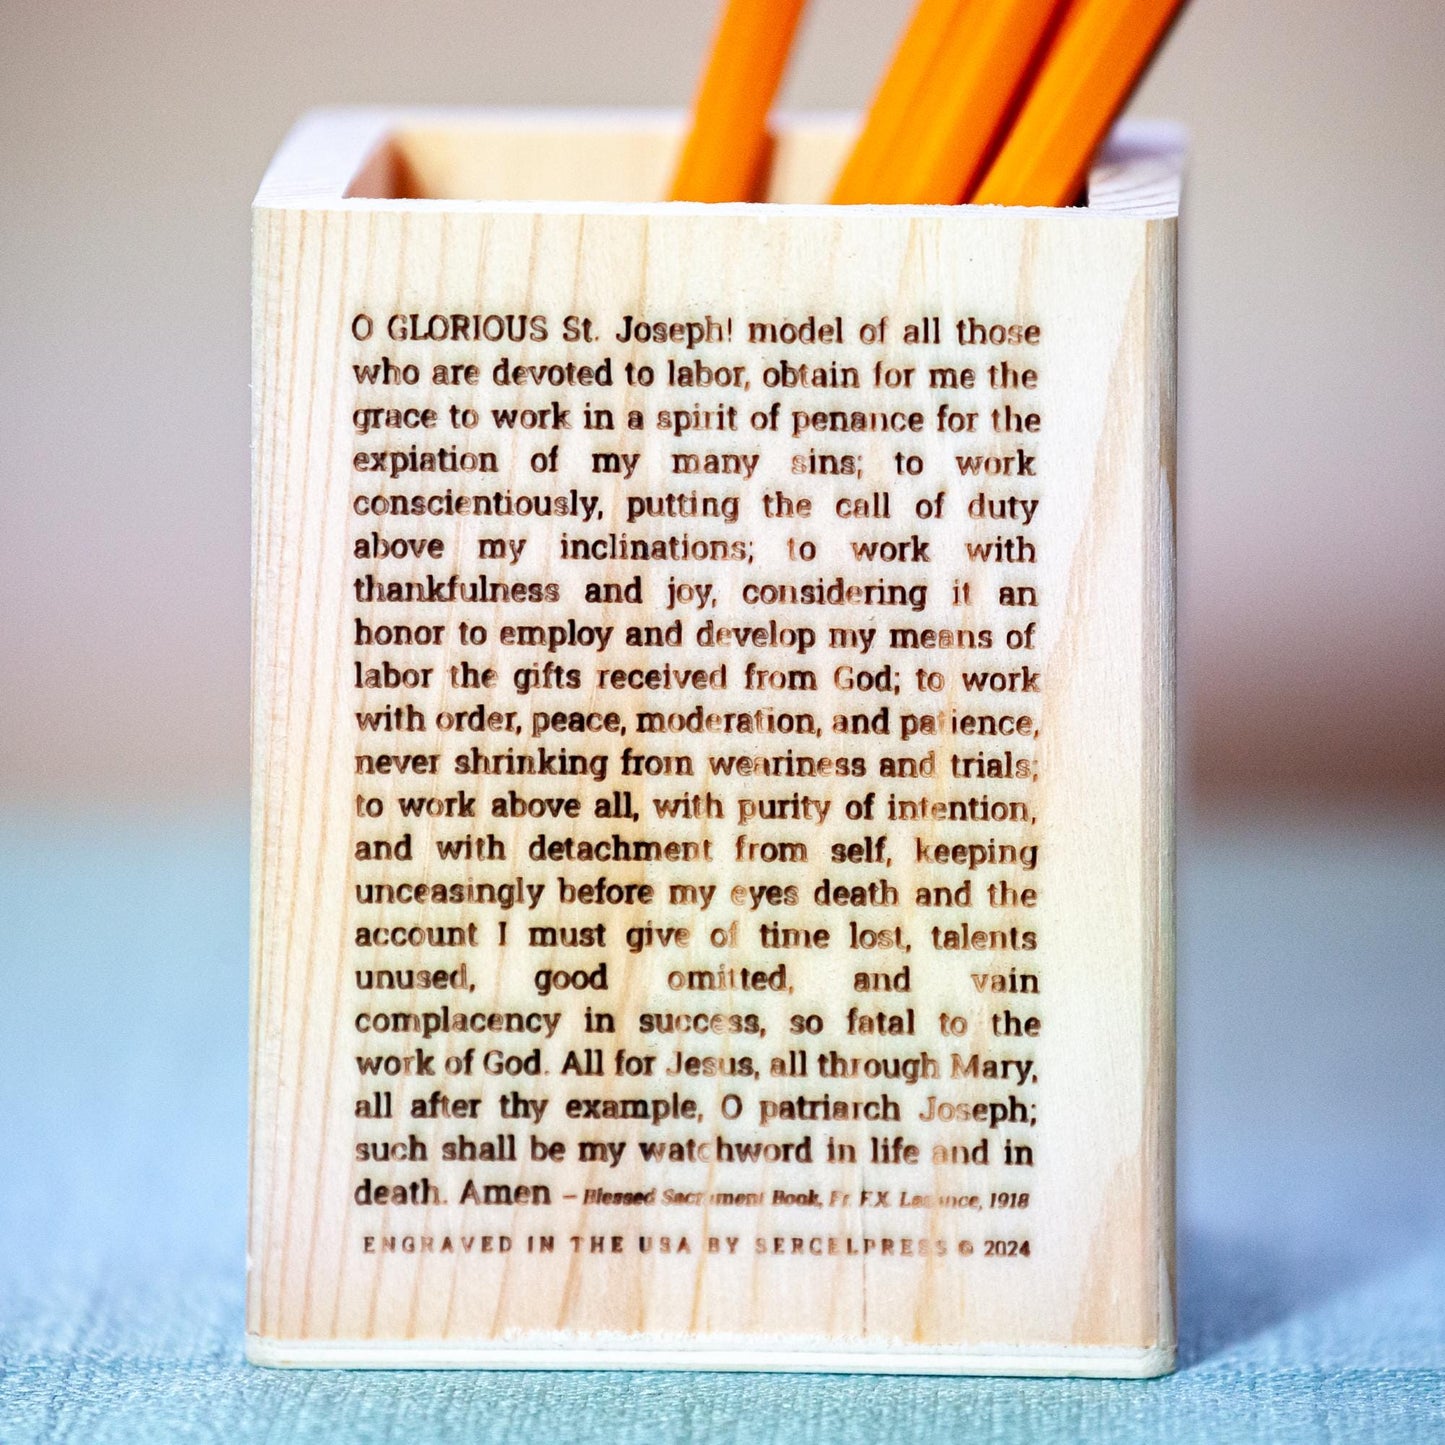 O GLORIOUS St. Joseph! model of all those
who are devoted to labor, obtain for me the
grace to work in a spirit of penance for the
expiation of my many sins; to work
conscientiously, putting the call of duty
above my inclinations; to work with
thankfulness and joy, considering it an
honor to employ and develop my means of
labor the gifts received from God; to work
with order, peace, moderation, and patience,
never shrinking from weariness and trials;
to work above all, with purity of intention,
and with detachment from self, keeping
unceasingly before my eyes death and the
account I must give of time lost, talents
unused, good omitted, and vain
complacency in success, so fatal to the
work of God. All for Jesus, all through Mary,
all after thy example, O patriarch Joseph;
such shall be my watchword in life and in
death. Amen – Blessed Sacrament Book, Fr. F.X. Lasance, 1918
ENGRAVED IN THE USA BY SERCELPRESS © 2024